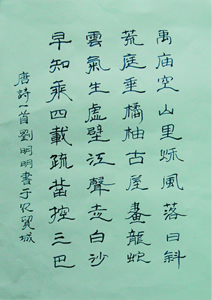 禹庙空山里秋風落日斜
荒庭垂橘柚古屋畫龍蛇
雲氣生虛壁江聲走白沙
早知乘四載疏鑿控三巴
唐詩一首劉明明書于城